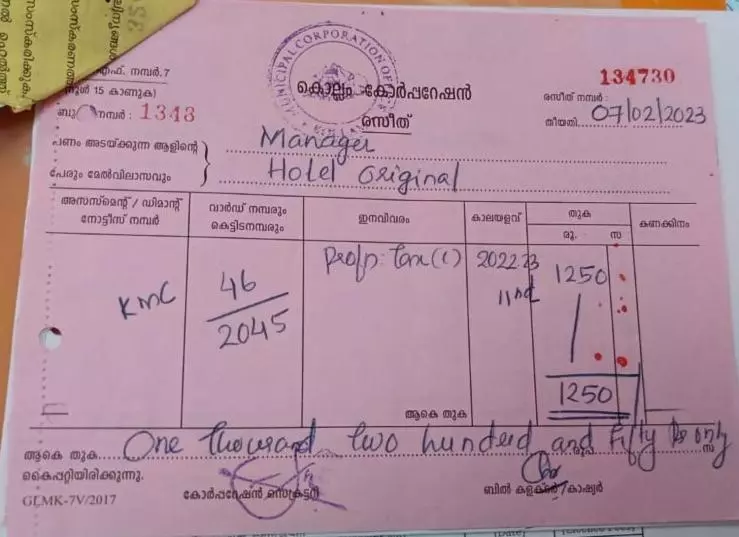 എഫ്. നമ്പർ.7
(റൂൾ 15 കാണുക)
MUNICIPAL CORPORATION OF
കൊല്ലം കോർപ്പറേഷൻ
രസീത്
134730
രസീത് നമ്പർ :
നമ്പർ : 1343
തീയതി 07/02/2023
പണം അടയ്ക്കുന്ന ആളിന്റെ Manager
പേരും മേൽവിലാസവും Hotel Original
അസസ്മെന്റ് / ഡിമാന്റ് നോട്ടീസ് നമ്പർ വാർഡ് നമ്പരും കെട്ടിടനമ്പരും ഇനവിവരം കാലയളവ് തുക കണക്കിനം
രൂ. സ
KMC 46/2045 Profn: Tax (1) 2022-23 1250
IInd
ആകെ തുക 1250
ആകെ തുക One thousand two hundred and fifty Rs only
രൂപ സ
കൈപ്പറ്റിയിരിക്കുന്നു.
കോർപ്പറേഷൻ സെക്രട്ടറി ബിൽ കളക്ടർ/കാഷ്യർ
GLMK-7V/2017